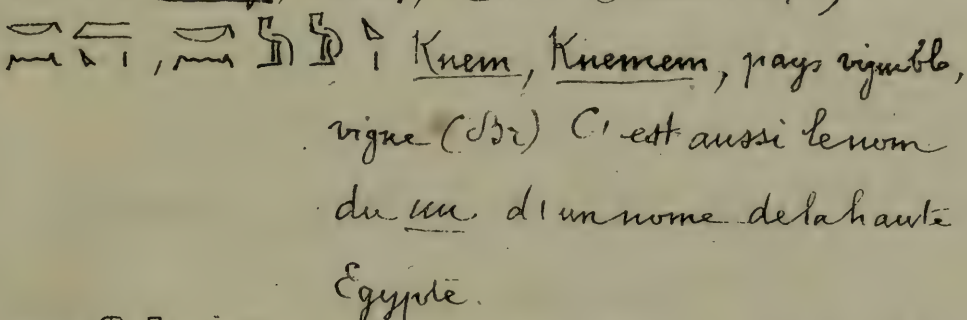 Knem, Knemem, pays vignoble,
vigne (Br) C'est aussi le nom
du uu. d'un nome de la haute
Égypte.